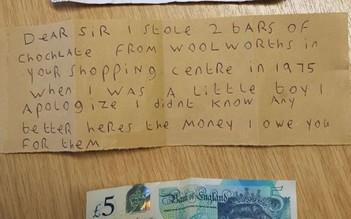 DEAR SIR I STOLE 2 BARS OF
CHOCHLATE FROM WOOLWORTHS in
YOUR SHOPPING CENTRE IN 1975
WHEN I WAS A LITTLE BOY I
APOLOGIZE I DIDNT KNOW ANY
better HERES THE MONEY I OWE YOU
FOR THEM
£5
Bank of England